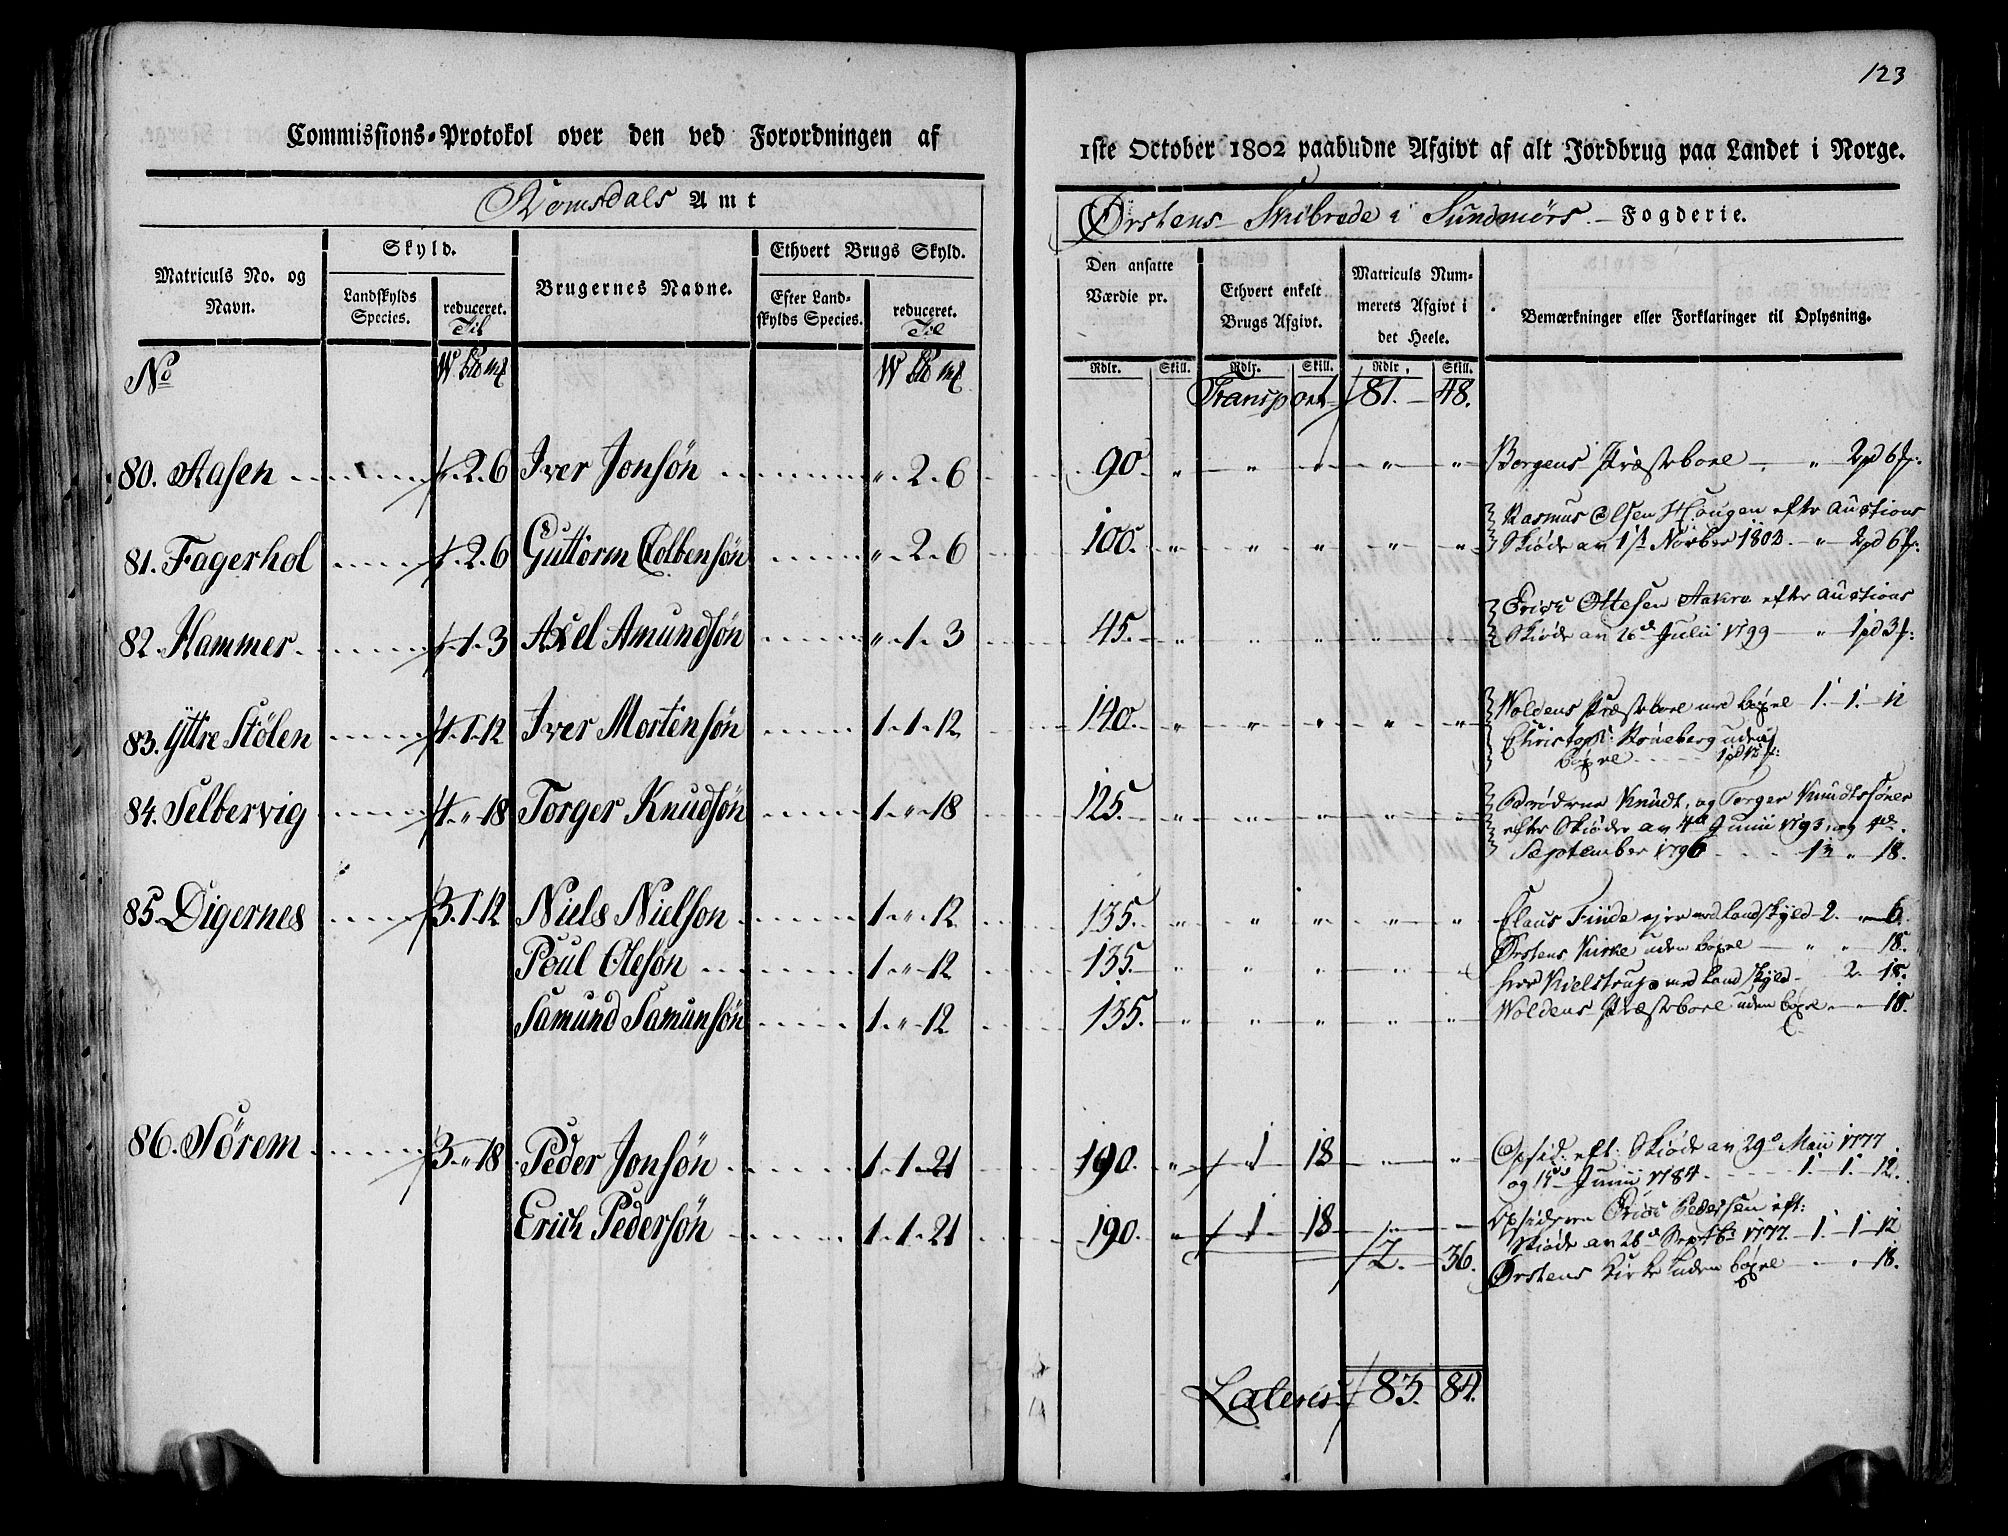 123
Commissions-Protokol over den ved Forordningen af
1ste October 1802 paabudne Afgivt af alt Jordbrug paa Landet i Norge.
Romsdals Amt
Ørstens Skibrede i Sundmørs Fogderie.
Matriculs No. og Navn.
Skyld.
Landskylds Species.
reduceret.
Til
Brugernes Navne.
Ethvert Brugs Skyld.
Efter Landskylds Species.
reduceret.
Til
Den ansatte Værdie pr.
Ethvert enkelt Brugs Afgivt.
Matriculs Nummerets Afgivt i det Heele.
Bemærkninger eller Forklaringer til Oplysning.
Rdlr. Skill. Rdlr. Skill. Rdlr. Skill.
No
Transport 81. 48.
80. Aasen " 2. 6 Iver Jonsøn " 2. 6 90. " " " " " Borgens Præstebole " 2pd 6
81. Fagerhol " 2. 6 Guttorm Colbensøn " 2. 6 100. " " " " " Rasmus Olsen Hougen efter Auctions
Skiøde av 1ste Novbr 1802. " 2pd 6
82. Hammer 1. 3 Axel Amundsøn " 1. 3 45. " " " " " Ottesen Aakre efter Auctions
Skiøde av 26de Julii 1799 " 1pd 3
83. Yttre Stölen 1. 1. 12 Iver Mortensøn 1. 1. 12 140. " " " " " Woldens Præstebole med bøxel 1. 1. 12
Christoph: Röneberg uden
bøxel 1pd 12
84. Selbervig 1. " 18 Torger Knudsøn 1. " 18 125. " " " " " Brødrene Knudt, og Torger Knudtssøner
efter Skiøder av 4de Junii 1793, og 4de
September 1796 1 " 18.
85. Digernes 3. 1. 12 Niels Nielson 1. " 12 135. " " " " " Claus Finde ejer med Landskyld 2. " 6.
Ørstens Kirke uden bøxel " " 18.
Poul Olesøn 1. " 12 135. " " " " " Kielstrup med Landskyld 2. 18.
Samund Samunsøn 1. " 12 135. " " " " " Woldens Præstebole uden bøxel " 18.
86. Sørem 3. " 18 Peder Jonsøn 1. 1. 21 190. " 1 18 " " Opsid: eft: Skiøde av 29de Maii 1777
og Junii 1784 1. 1. 12.
Erich Pedersøn 1. 1. 21 190. " 1 18 Opsidderen Pedersen eft:
Skiøde av 26de Septbr 1777. 1. 1. 12
2. 36. Ørstens Kirke uden bøxel " " 18.
Lateris 83. 84.